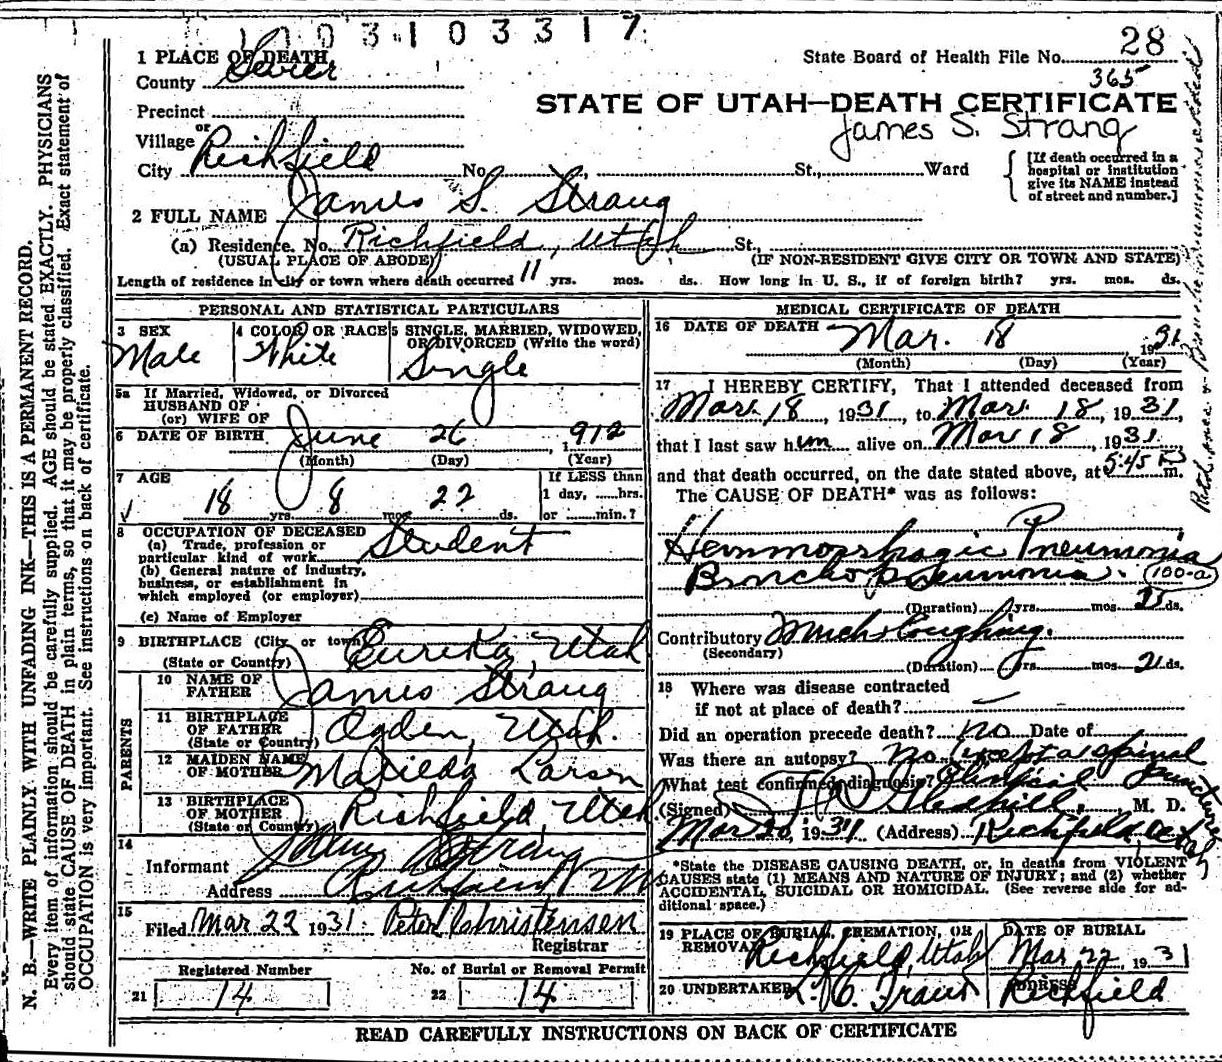 1003103317
1 PLACE OF DEATH
State Board of Health File No. 28
County Sevier
365
Precinct
STATE OF UTAH—DEATH CERTIFICATE
Village
or
James S. Strang
City Richfield No. , St., Ward
[If death occurred in a hospital or institution give its NAME instead of street and number.]
2 FULL NAME James S. Strang
(a) Residence. No. Richfield, Utah St.,
(USUAL PLACE OF ABODE) (IF NON-RESIDENT GIVE CITY OR TOWN AND STATE)
Length of residence in city or town where death occurred 11 yrs. mos. ds. How long in U. S., if of foreign birth? yrs. mos. ds.
PERSONAL AND STATISTICAL PARTICULARS
3 SEX Male
4 COLOR OR RACE White
5 SINGLE, MARRIED, WIDOWED, OR DIVORCED (Write the word) Single
5a If Married, Widowed, or Divorced
HUSBAND OF
(or) WIFE OF
6 DATE OF BIRTH June 26 1912
(Month) (Day) (Year)
7 AGE 18 yrs. 8 mos. 22 ds.
If LESS than 1 day, hrs. or min.?
8 OCCUPATION OF DECEASED
(a) Trade, profession or particular kind of work Student
(b) General nature of industry, business, or establishment in which employed (or employer)
(c) Name of Employer
9 BIRTHPLACE (City or town) Eureka, Utah
(State or Country)
PARENTS
10 NAME OF FATHER James Strang
11 BIRTHPLACE OF FATHER Ogden, Utah.
(State or Country)
12 MAIDEN NAME OF MOTHER Matilda Larsen
13 BIRTHPLACE OF MOTHER Richfield, Utah
(State or Country)
14
Informant James Strang
Address Richfield
15
Filed Mar 22 1931. Peter Christensen
Registrar
Registered Number No. of Burial or Removal Permit
21 14 22 14
MEDICAL CERTIFICATE OF DEATH
16 DATE OF DEATH Mar. 18 1931
(Month) (Day) (Year)
17 I HEREBY CERTIFY, That I attended deceased from
Mar. 18, 1931, to Mar. 18, 1931,
that I last saw him alive on Mar 18, 1931
and that death occurred, on the date stated above, at 5:45 m.
The CAUSE OF DEATH* was as follows:
Hemmorrhagic Pneumonia
Bronchopneumonia. (100-a)
(Duration) yrs. mos. ds.
Contributory Much Coughing.
(Secondary)
(Duration) yrs. mos. 21 ds.
18 Where was disease contracted
if not at place of death? —
Did an operation precede death? no Date of
Was there an autopsy? no (except a spinal puncture)
What test confirmed diagnosis? Clinical
(Signed) M. D.
Mar 20, 1931 (Address) Richfield, Utah
*State the DISEASE CAUSING DEATH, or, in deaths from VIOLENT
CAUSES state (1) MEANS AND NATURE OF INJURY; and (2) whether
ACCIDENTAL, SUICIDAL OR HOMICIDAL. (See reverse side for ad-
ditional space.)
19 PLACE OF BURIAL, CREMATION, OR REMOVAL Richfield, Utah
DATE OF BURIAL Mar 22, 1931
20 UNDERTAKER
ADDRESS Richfield
READ CAREFULLY INSTRUCTIONS ON BACK OF CERTIFICATE
N. B.—WRITE PLAINLY, WITH UNFADING INK—THIS IS A PERMANENT RECORD.
Every item of information should be carefully supplied. AGE should be stated EXACTLY. PHYSICIANS
should state CAUSE OF DEATH in plain terms, so that it may be properly classified. Exact statement of
OCCUPATION is very important. See instructions on back of certificate.